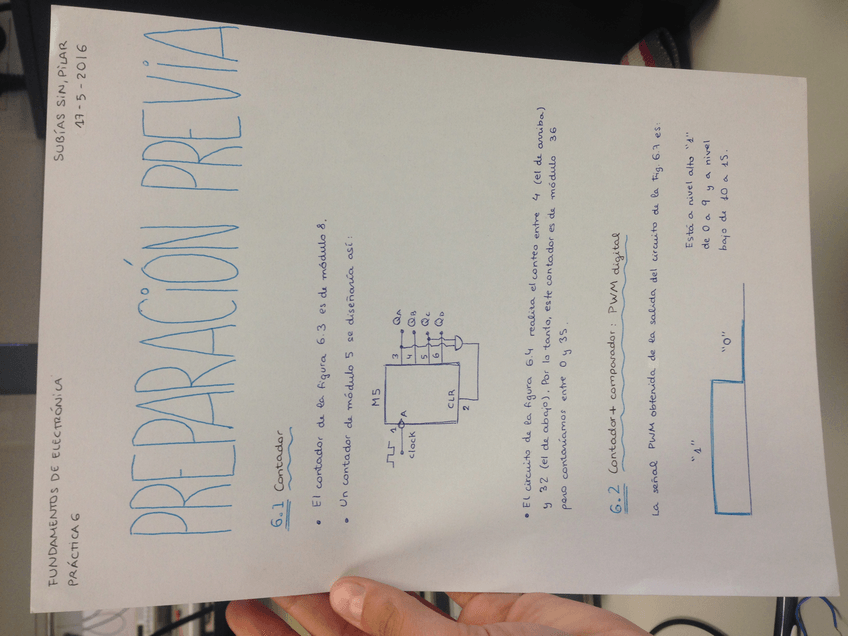 FUNDAMENTOS DE ELECTRÓNICA
PRÁCTICA 6
SUBÍAS SIN, PILAR
17-5-2016
PREPARACIÓN PREVIA
6.1 Contador
• El contador de la figura 6.3 es de módulo 8.
• Un contador de módulo 5 se diseñaría así:
M5
1
A
clock
CLR
2
3 QA
4 QB
5 QC
6 QD
• El circuito de la figura 6.4 realiza el conteo entre 4 (el de arriba)
y 32 (el de abajo). Por lo tanto, este contador es de módulo 36
pero contaríamos entre 0 y 35.
6.2 Contador + comparador: PWM digital
La señal PWM obtenida de la salida del circuito de la Fig. 6.7 es:
"1"
"0"
Está a nivel alto "1"
de 0 a 9 y a nivel
bajo de 10 a 15.